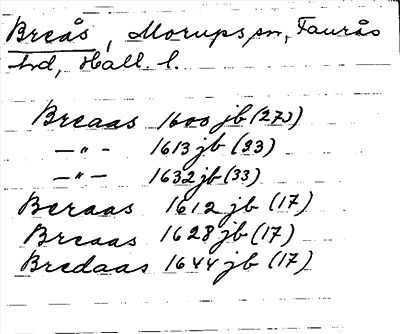 Breås, Morups sn, Faurås
hd, Hall. l.
Breaas 1600 jb (273)
—"— 1613 jb (23)
—"— 1632 jb (33)
Beraas 1612 jb (17)
Breaas 1628 jb (17)
Bredaas 1644 jb (17)